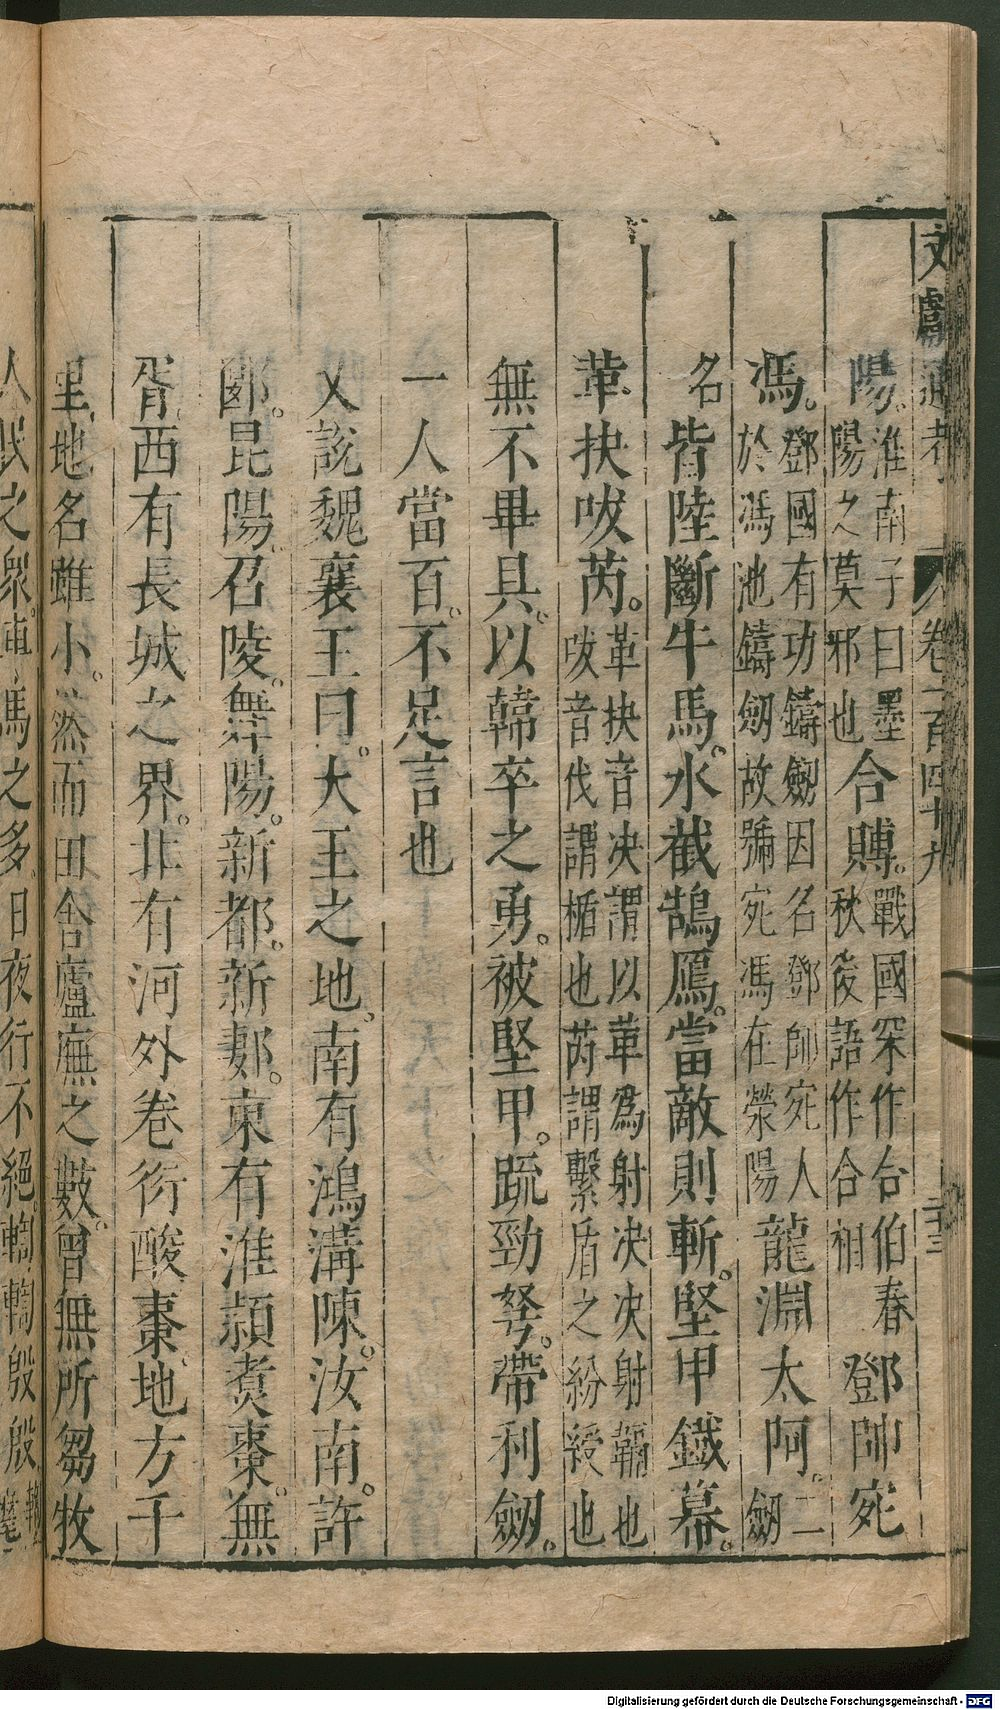 文獻通考 卷一百四十九 二十三
陽。淮南子曰墨陽之莫邪也合賻。戰國策作合伯春秋後語作合相鄧師宛
馮。鄧國有功鑄劒因名鄧師宛人於馮池鑄劒故號宛馮在滎陽龍淵太阿。二劒
名皆陸斷牛馬。水截鵠鴈。當敵則斬。堅甲鐵幕。
革抉㕹芮。革抉音决謂以革爲射决决射鞴也㕹音伐謂楯也芮謂繫盾之紛綬也
無不畢具。以韓卒之勇。被堅甲。蹠勁弩。帶利劒。
一人當百。不足言也
又說魏襄王曰。大王之地。南有鴻溝陳。汝南。許
郾。昆陽。召陵。舞陽。新都。新郪。東有淮潁煑棗。無
胥。西有長城之界。非有河外卷衍酸棗。地方千
里。地名雖小。然而田舍廬廡之數。曾無所芻牧
人民之衆。車馬之多。日夜行不絕。輷輷殷殷
Digitalisierung gefördert durch die Deutsche Forschungsgemeinschaft - DFG